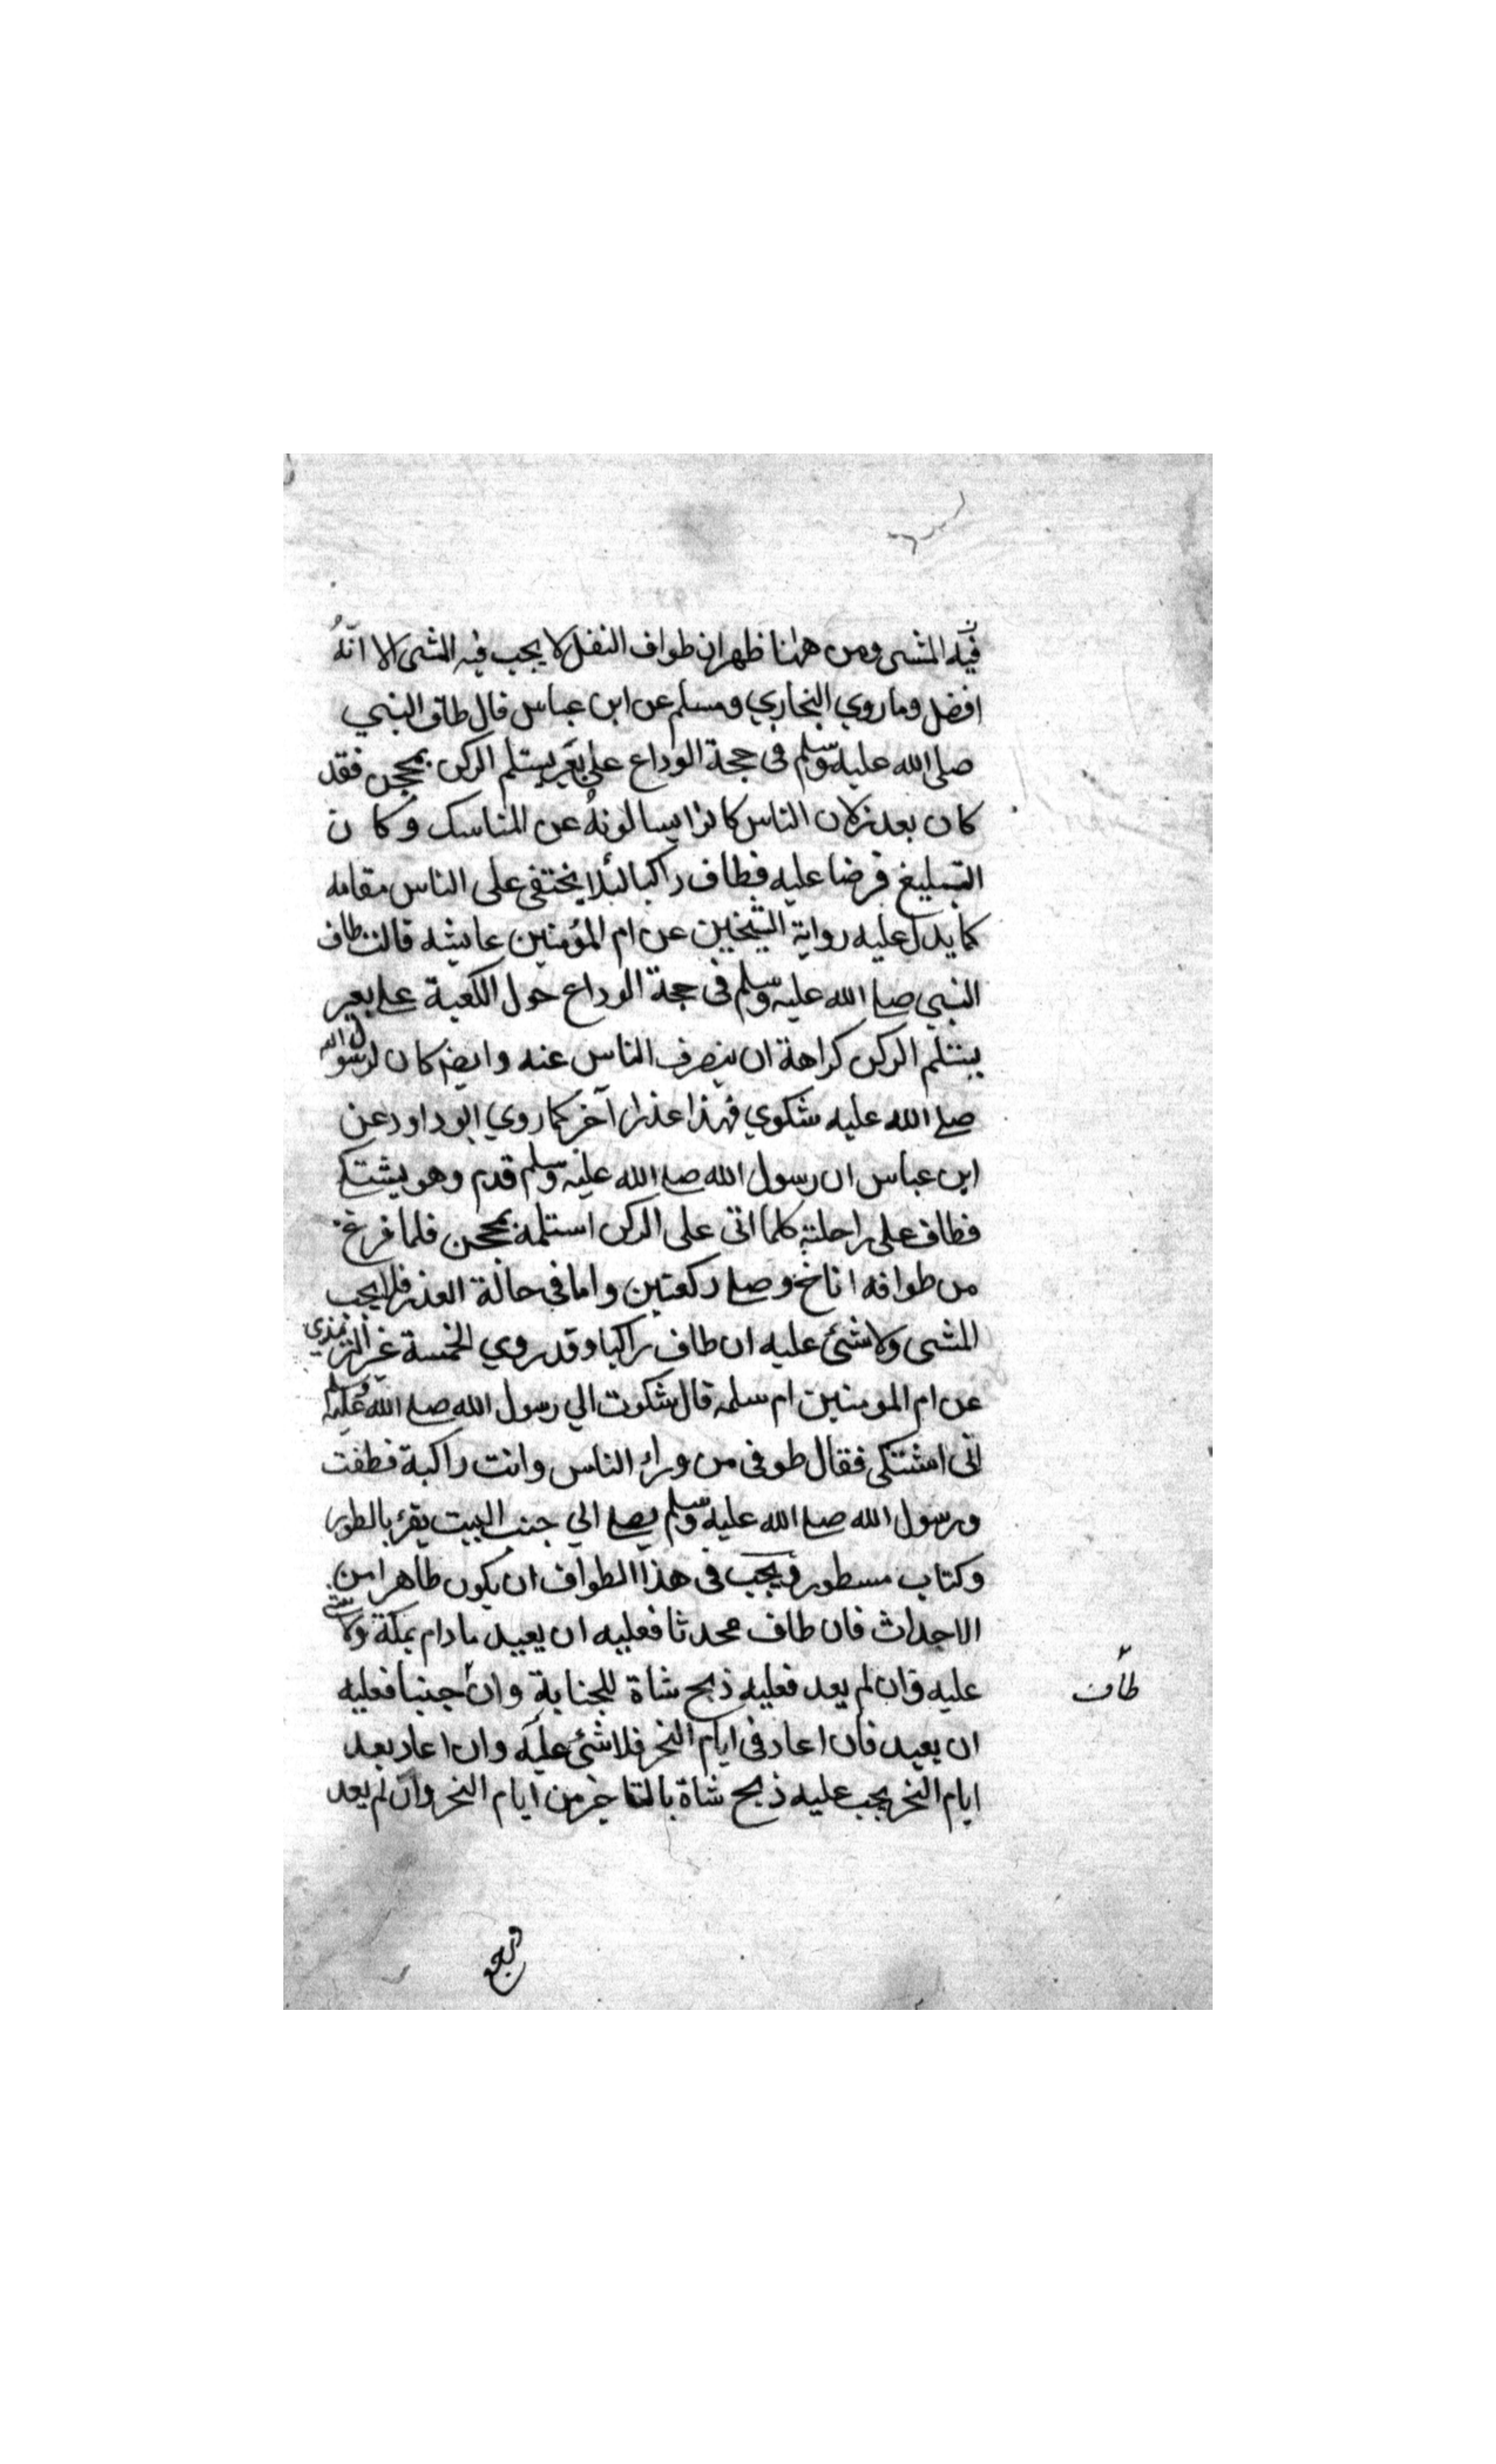 فيه المشي ومن ههنا ظهر ان طواف النفل لا يجب فيه المشي الا انّهُ
افضل وما روي البخاري ومسلم عن ابن عباس قال طاف النبي
صلى الله عليه وسلم فى حجة الوداع على بعير يستلم الركن بمحجن فقد
كان بعد لان الناس كانوا يسالونهُ عن المناسك وكان
التبليغ فرضا عليه فطاف راكبا لئلا يختفى على الناس مقامه
كما يدل عليه رواية الشيخين عن ام المؤمنين عايشه قالت طاف
النبي صلى الله عليه وسلم فى حجة الوداع حول الكعبة على بعير
يستلم الركن كراهة ان ينصرف الناس عنه وايضا كان لرسول الله
صلى الله عليه شكوي فهذا عذر آخر كما روي ابو داود عن
ابن عباس ان رسول الله صلى الله عليه وسلم قدم وهو يشتكي
فطاف على راحلته كلما اتى على الركن استلمه بمحجن فلما فرغ
من طوافه اناخ وصلى ركعتين واما فى حالة العذر فلا يجب
المشي ولا شئ عليه ان طاف راكبا وقد روي الخمسة غير الترمذي
عن ام المومنين ام سلمه قال شكوت الي رسول الله صلى الله عليه وسلم
انّى اشتكى فقال طوفى من وراء الناس وانت راكبة فطفت
ورسول الله صلى الله عليه وسلم يصلى الي جنب البيت يقرء بالطور
وكتاب مسطور ويجب فى هذا الطواف ان يكون طاهرا من
الاحداث فان طاف محدثا فعليه ان يعيد ما دام بمكة ولا شئ
عليه وان لم يعد فعليه ذبح شاة للجناية وان جنبا فعليه
طاف
ان يعيد فان اعاد فى ايام النحر فلا شئ عليه وان اعاد بعد
ايام النحر يجب عليه ذبح شاة بالتاخر من ايام النحر وان لم يعد